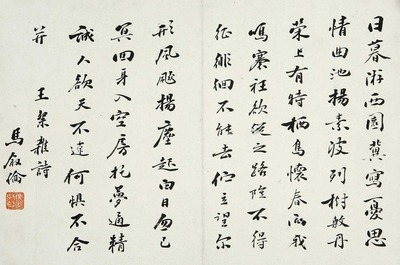 日暮游西園冀寫憂思
情曲池揚素波列樹敷丹
榮上有特栖鳥懷春向我
鳴褰衽欲從之路險不得
征徘徊不能去佇立望尔
形風飈揚塵起白日忽已
冥回身入空房托夢通精
誠人欲天不違何懼不合
并 王粲雜詩
馬叙倫